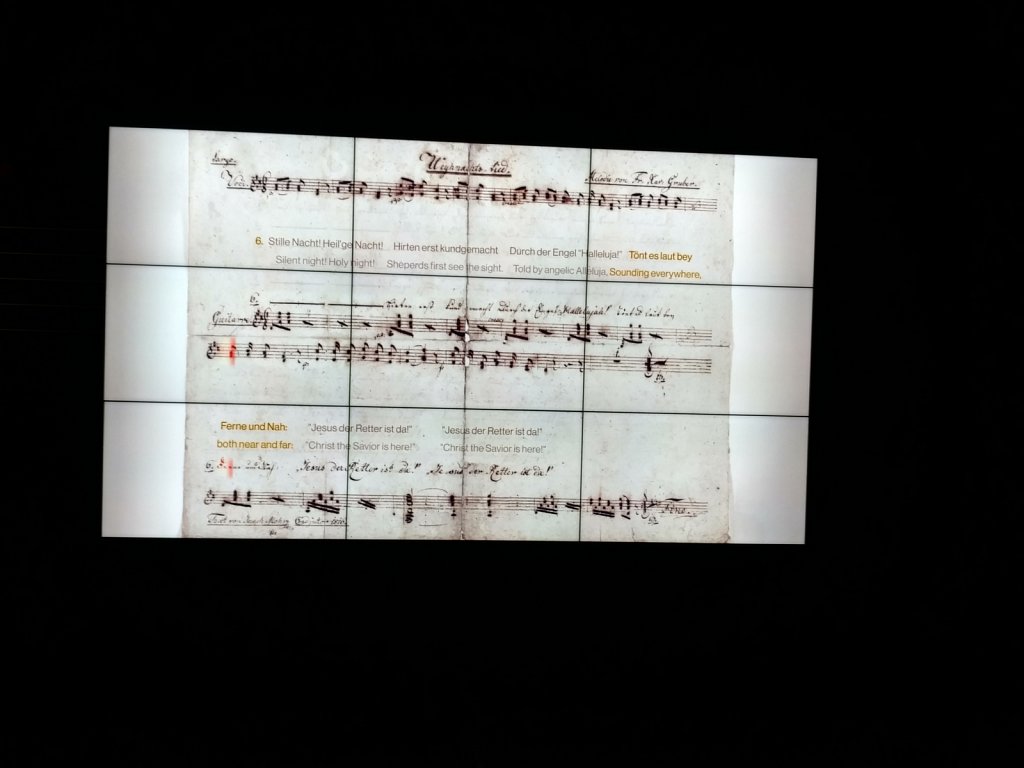 Largo.
Weyhnachts-Lied.
Voci.
Musica von Fr. Xav. Gruber.
6. Stille Nacht! Heil'ge Nacht! Hirten erst kundgemacht Durch der Engel "Halleluja!" Tönt es laut bey
Silent night! Holy night! Sheperds first see the sight. Told by angelic Alleluja, Sounding everywhere,
6. Hirten erst kund gemacht Durch der Engel Hallelujah! Tönt es laut bey
Guitarre
Ferne und Nah: "Jesus der Retter ist da!" "Jesus der Retter ist da!"
both near and far: "Christ the Savior is here!" "Christ the Savior is here!"
6. Ferne und Nah: Jesus der Retter ist da!" Jesus der Retter ist da!"
Text von Joseph Mohr
Fine.